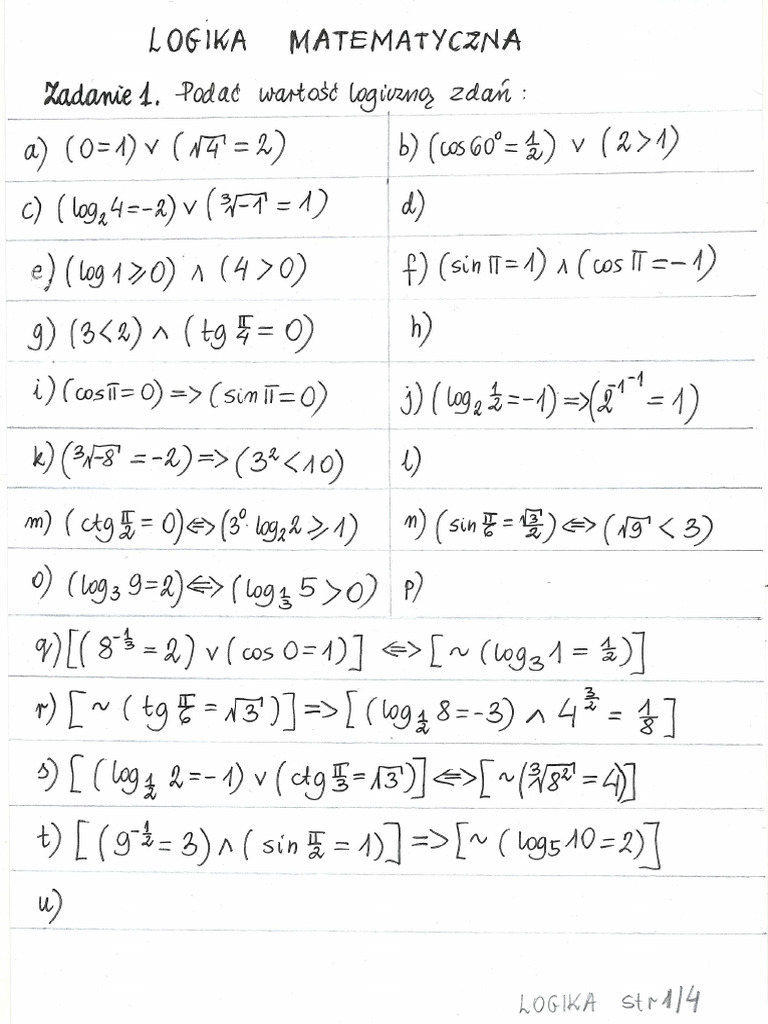 LOGIKA MATEMATYCZNA
Zadanie 1. Podać wartość logiczną zdań:
a) (0=1) ∨ (√4 = 2)
b) (cos 60° = 1/2) ∨ (2 > 1)
c) (log₂ 4 = -2) ∨ (∛-1 = 1)
d)
e) (log 1 ⩾ 0) ∧ (4 > 0)
f) (sin π = 1) ∧ (cos π = -1)
g) (3 < 2) ∧ (tg π/4 = 0)
h)
i) (cos π = 0) => (sin π = 0)
j) (log₂ 1/2 = -1) => (2^-1^-1 = 1)
k) (∛-8 = -2) => (3² < 10)
l)
m) (ctg π/2 = 0) <=> (3⁰ · log₂ 2 ⩾ 1)
n) (sin π/6 = √3/2) <=> (√9 < 3)
o) (log₃ 9 = 2) <=> (log_1/3 5 > 0)
p)
q) [(8^-1/3 = 2) ∨ (cos 0 = 1)] <=> [~ (log₃ 1 = 1/2)]
r) [~ (tg π/6 = √3)] => [(log_1/2 8 = -3) ∧ 4^3/2 = 1/8]
s) [(log_1/2 2 = -1) ∨ (ctg π/3 = √3)] <=> [~ (∛8² = 4)]
t) [(9^-1/2 = 3) ∧ (sin π/2 = 1)] => [~ (log₅ 10 = 2)]
u)
LOGIKA str 1/4